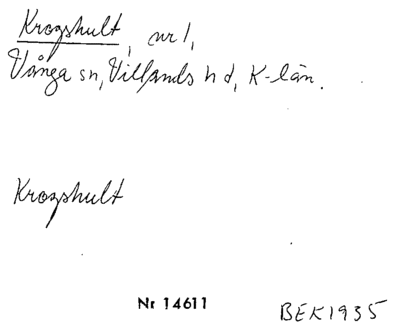 Krogshult, nr 1,
Vånga sn, Villands hd, K-län.
Krogshult
Nr 14611
BEK1935